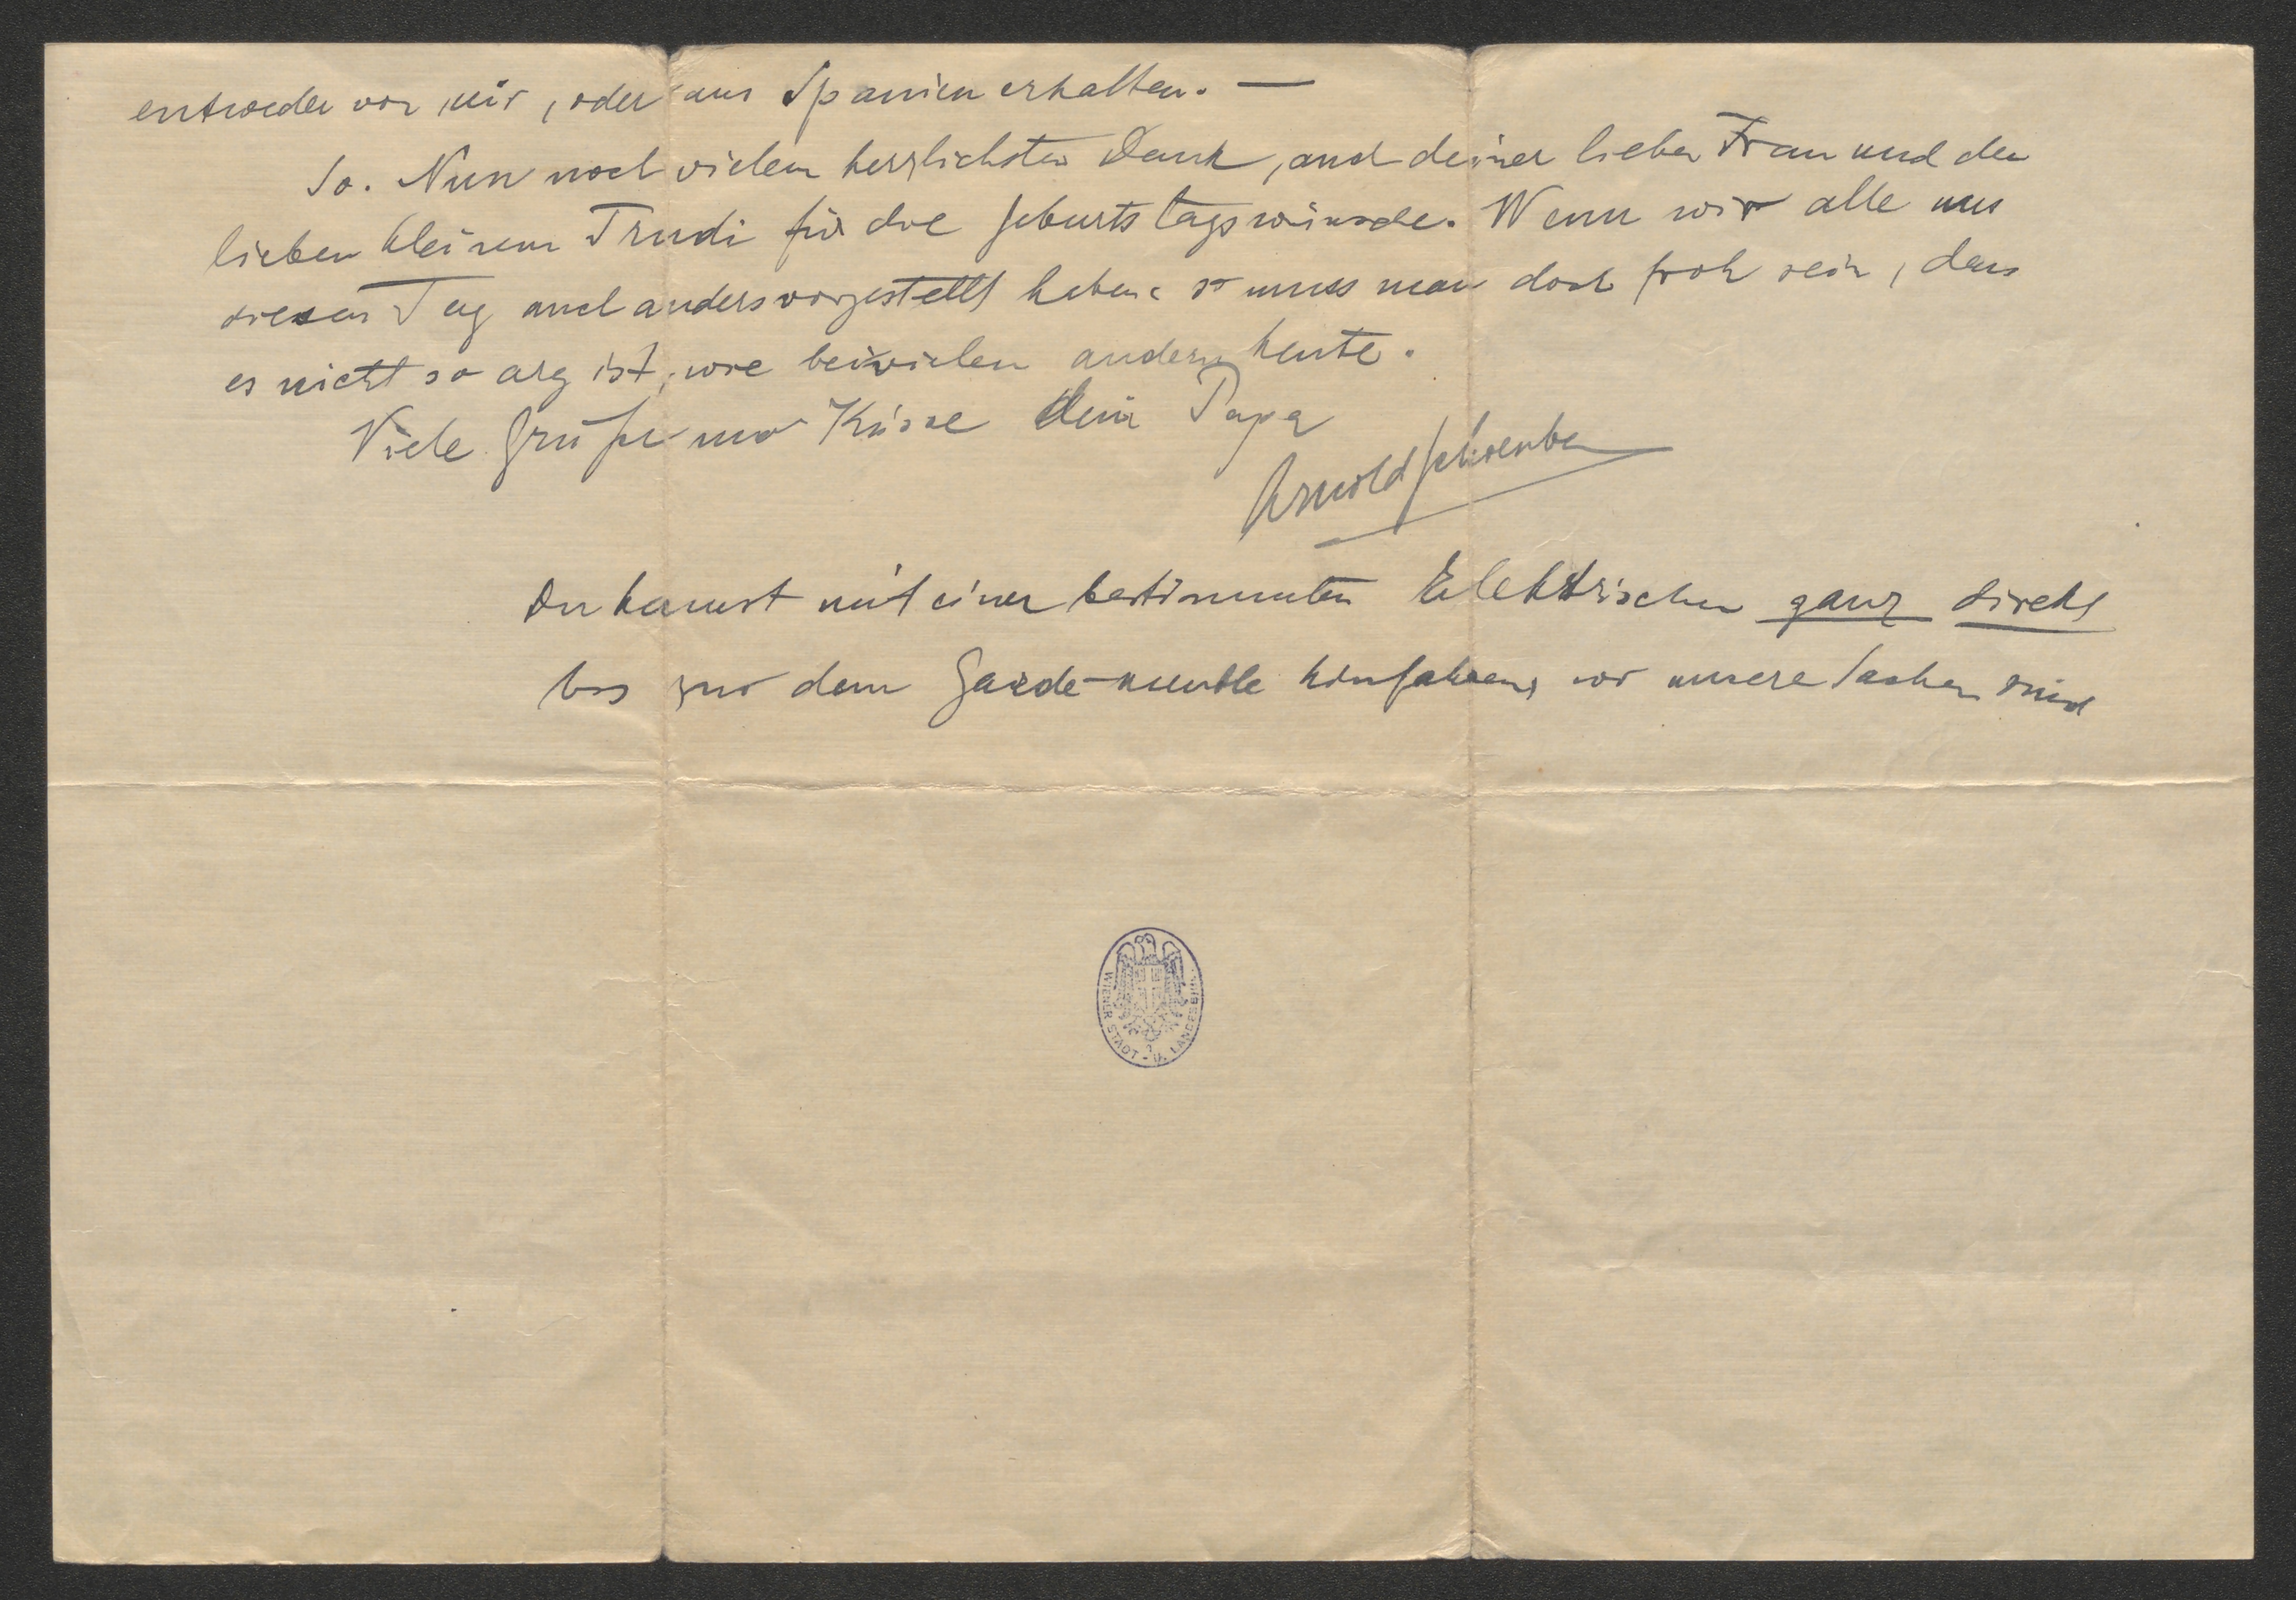 entweder von mir, oder aus Spanien erhalten. —
So. Nun noch vielen herzlichsten Dank, auch deiner lieben Frau und der
lieben kleinen Trudi für die Geburtstagswünsche. Wenn wir alle uns
diesen Tag auch anders vorgestellt haben: so muss man doch froh sein, dass
es nicht so arg ist, wie bei vielen andern heute.
Viele Grüße und Küsse Dein Papa
Arnold Schoenberg
Du kannst mit einer bestimmten Elektrischen ganz direkt
bis zu dem Garde-meuble hinfahren, wo unsere Sachen sind
WIENER STADT- U. LANDESBIBL.